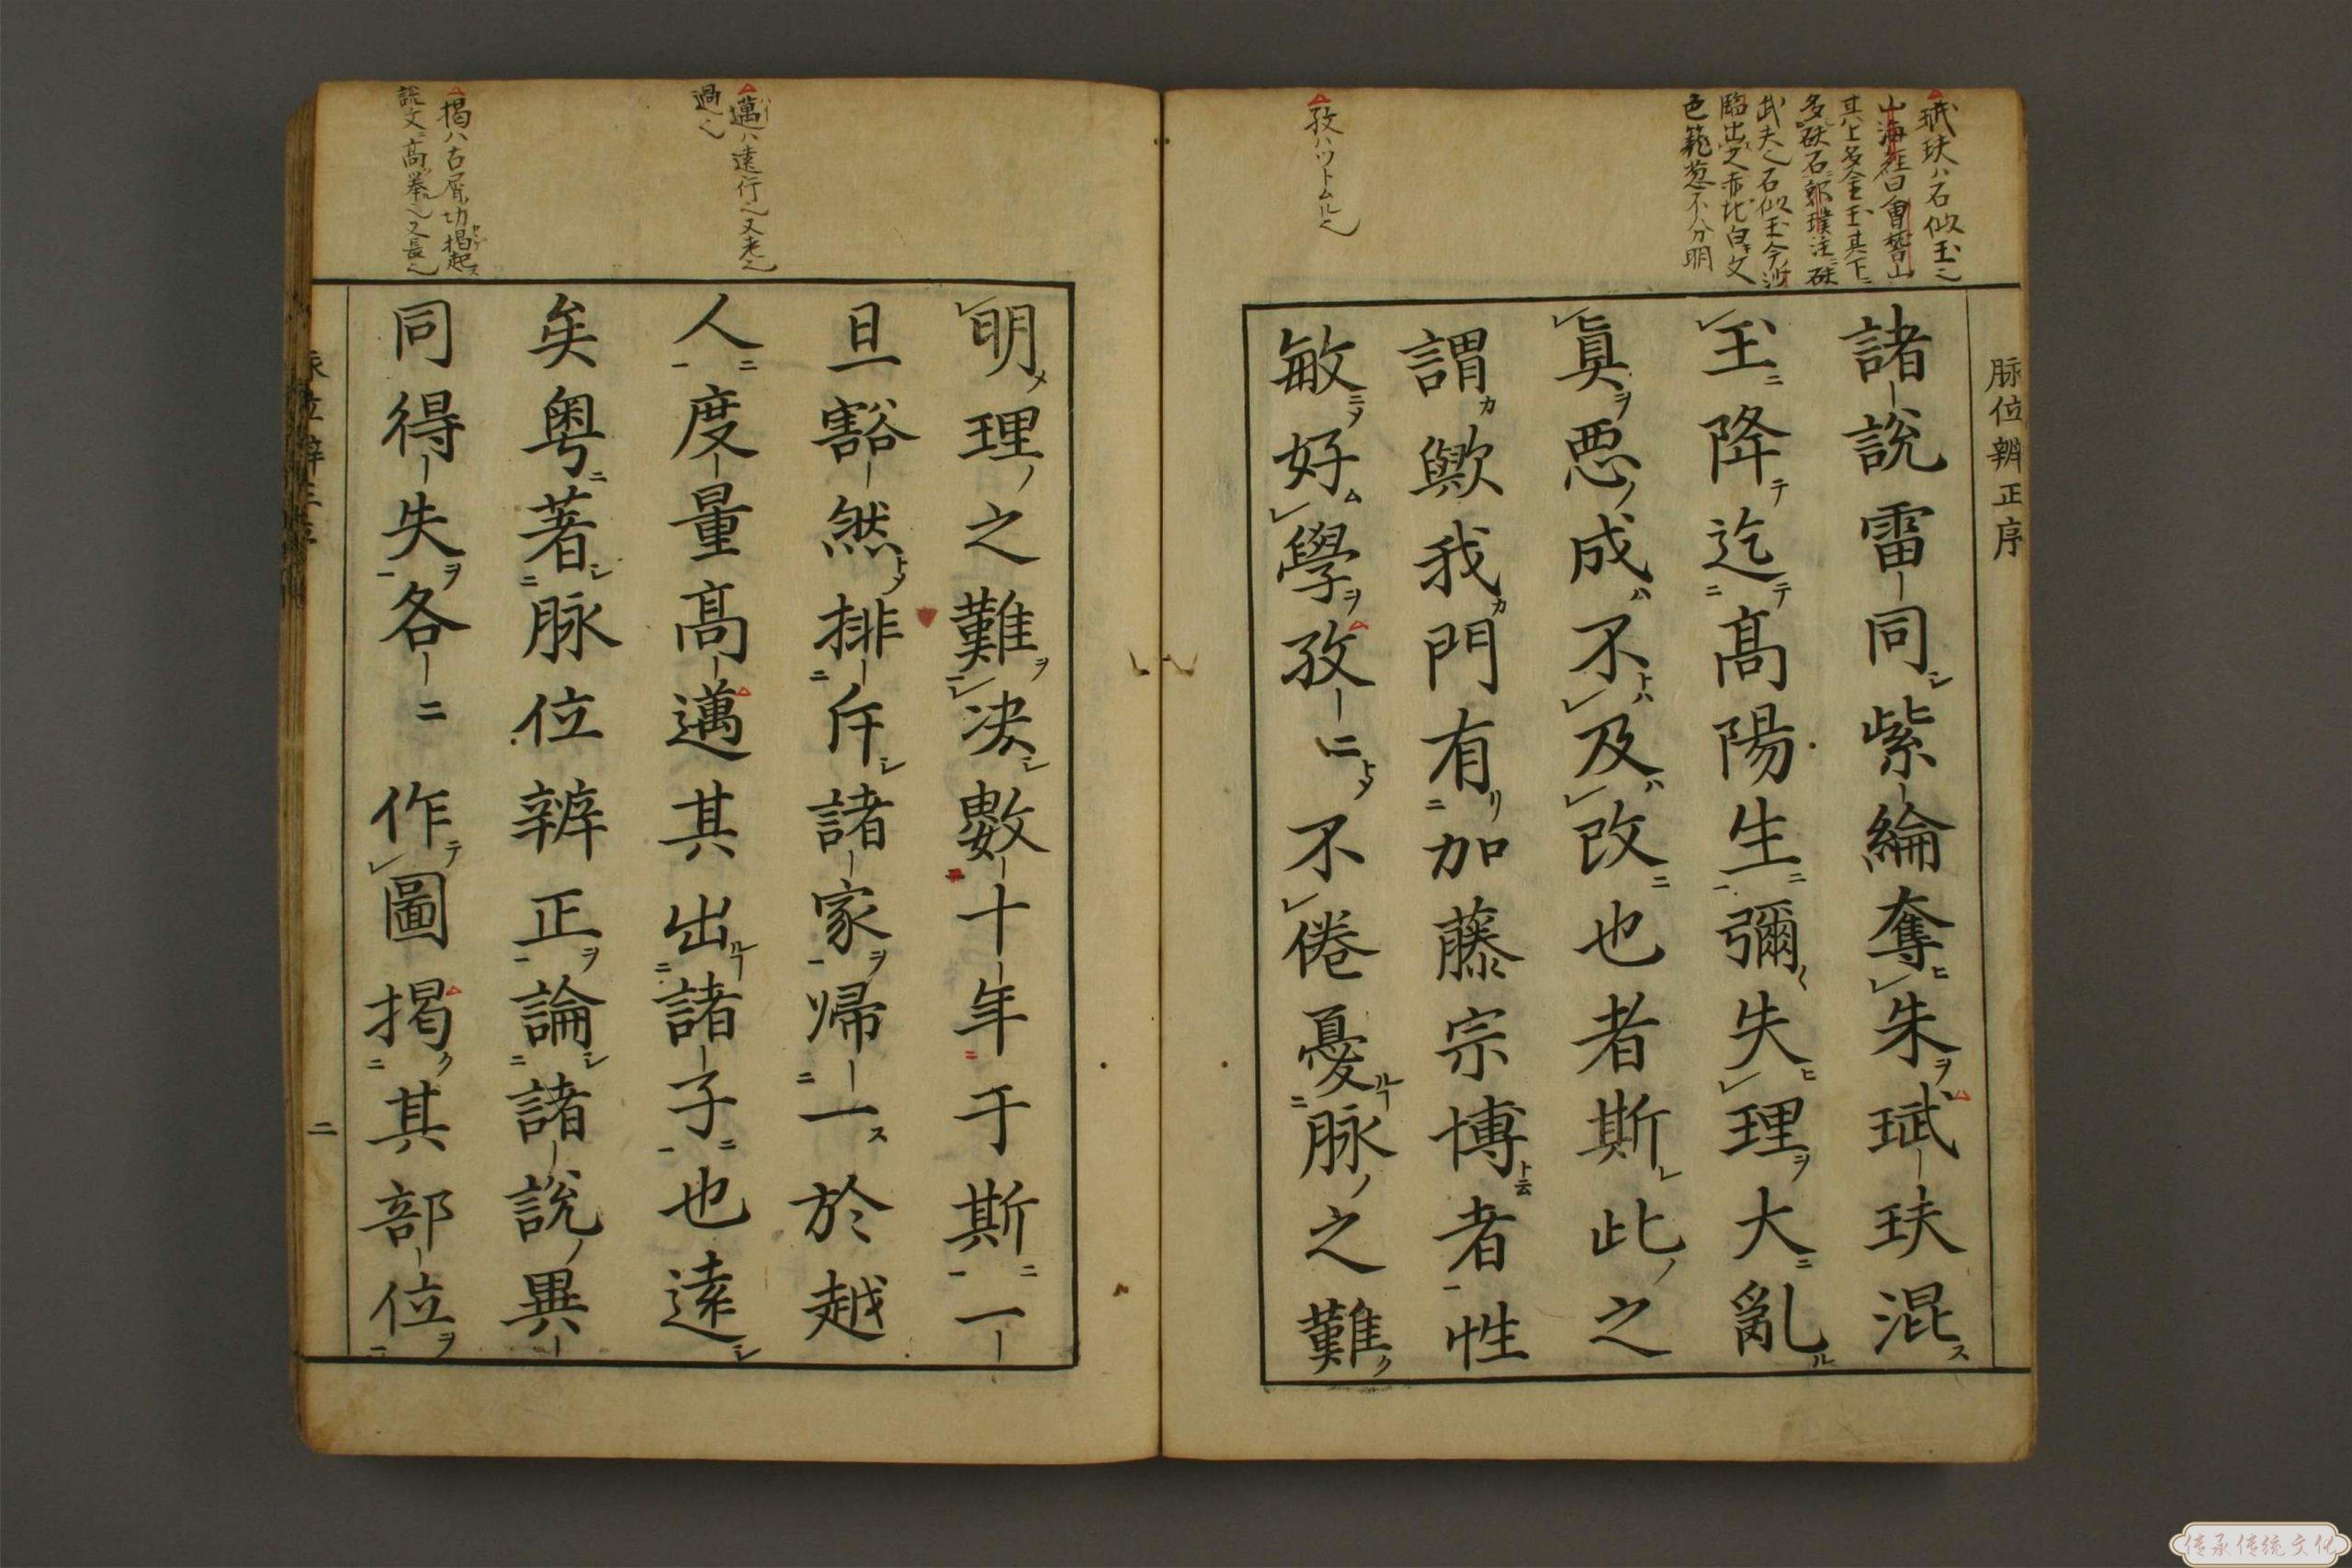 脉位辨正序
諸說雷同紫綸奪朱珷玞混
玉降迄髙陽生彌失理大亂
眞悪成不及改也者斯此之
謂歟我門有加藤宗博者性
敏好學孜〻不倦憂脉之難
明理之難决數十年于斯一
旦豁然排斥諸家帰一於越
人度量髙邁其出諸子也遠
矣粤著脉位辨正論諸說異
同得失各〻作圖揭其部位
二
珷玞ハ石似玉也
山海経曰會稽山
其上多金玉其下ニ
多砆石郭璞注砆
武夫也石似玉今沙
臨出之赤地白文
色蘢葱不分明
孜ハツトムル也
邁ハ遠行也又老也
過也
揭ハ古屑切揭起ス
說文高擧也又長也
传承传统文化